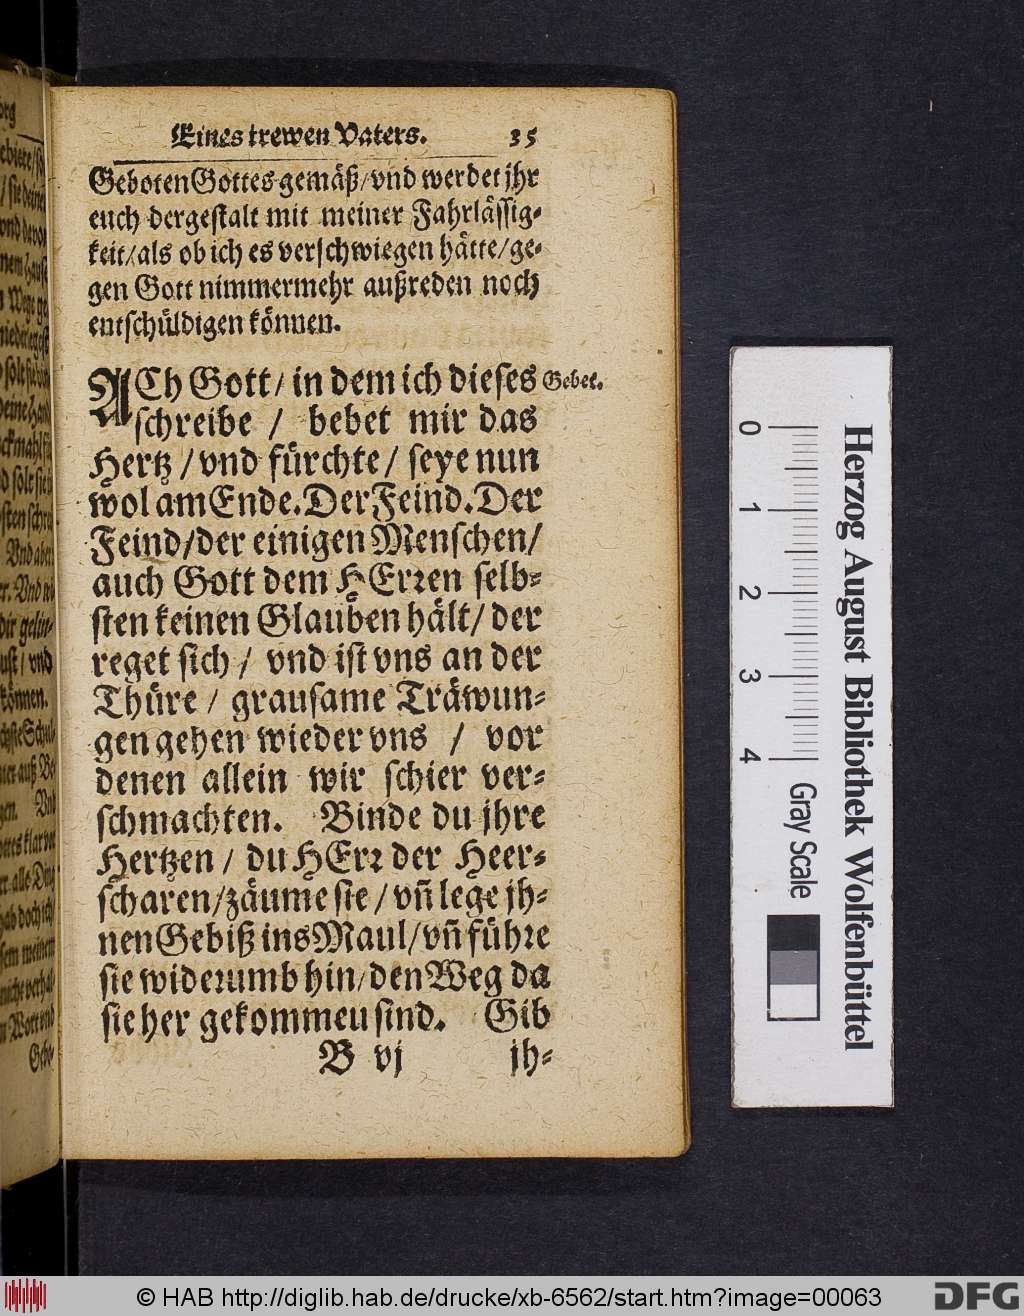 Eines trewen Vaters. 35
Geboten Gottes gemäß/ vnd werdet jhr
euch dergestalt mit meiner Fahrlässig-
keit/ als ob ich es verschwiegen hätte/ ge-
gen Gott nimmermehr außreden noch
entschüldigen können.
ACh Gott/ in dem ich dieses Gebet.
schreibe / bebet mir das
Hertz / vnd fürchte / seye nun
wol am Ende. Der Feind. Der
Feind/ der einigen Menschen/
auch Gott dem HErren selb-
sten keinen Glauben hält/ der
reget sich / vnd ist vns an der
Thüre / grausame Träwun-
gen gehen wieder vns / vor
denen allein wir schier ver-
schmachten. Binde du jhre
Hertzen / du HErr der Heer-
scharen/ zäume sie / vñ lege jh-
nen Gebiß ins Maul/ vñ führe
sie widerumb hin/ den Weg da
sie her gekommeu sind. Gib
B vj jh-
0 1 2 3 4
Gray Scale
Herzog August Bibliothek Wolfenbüttel
© HAB http://diglib.hab.de/drucke/xb-6562/start.htm?image=00063
DFG